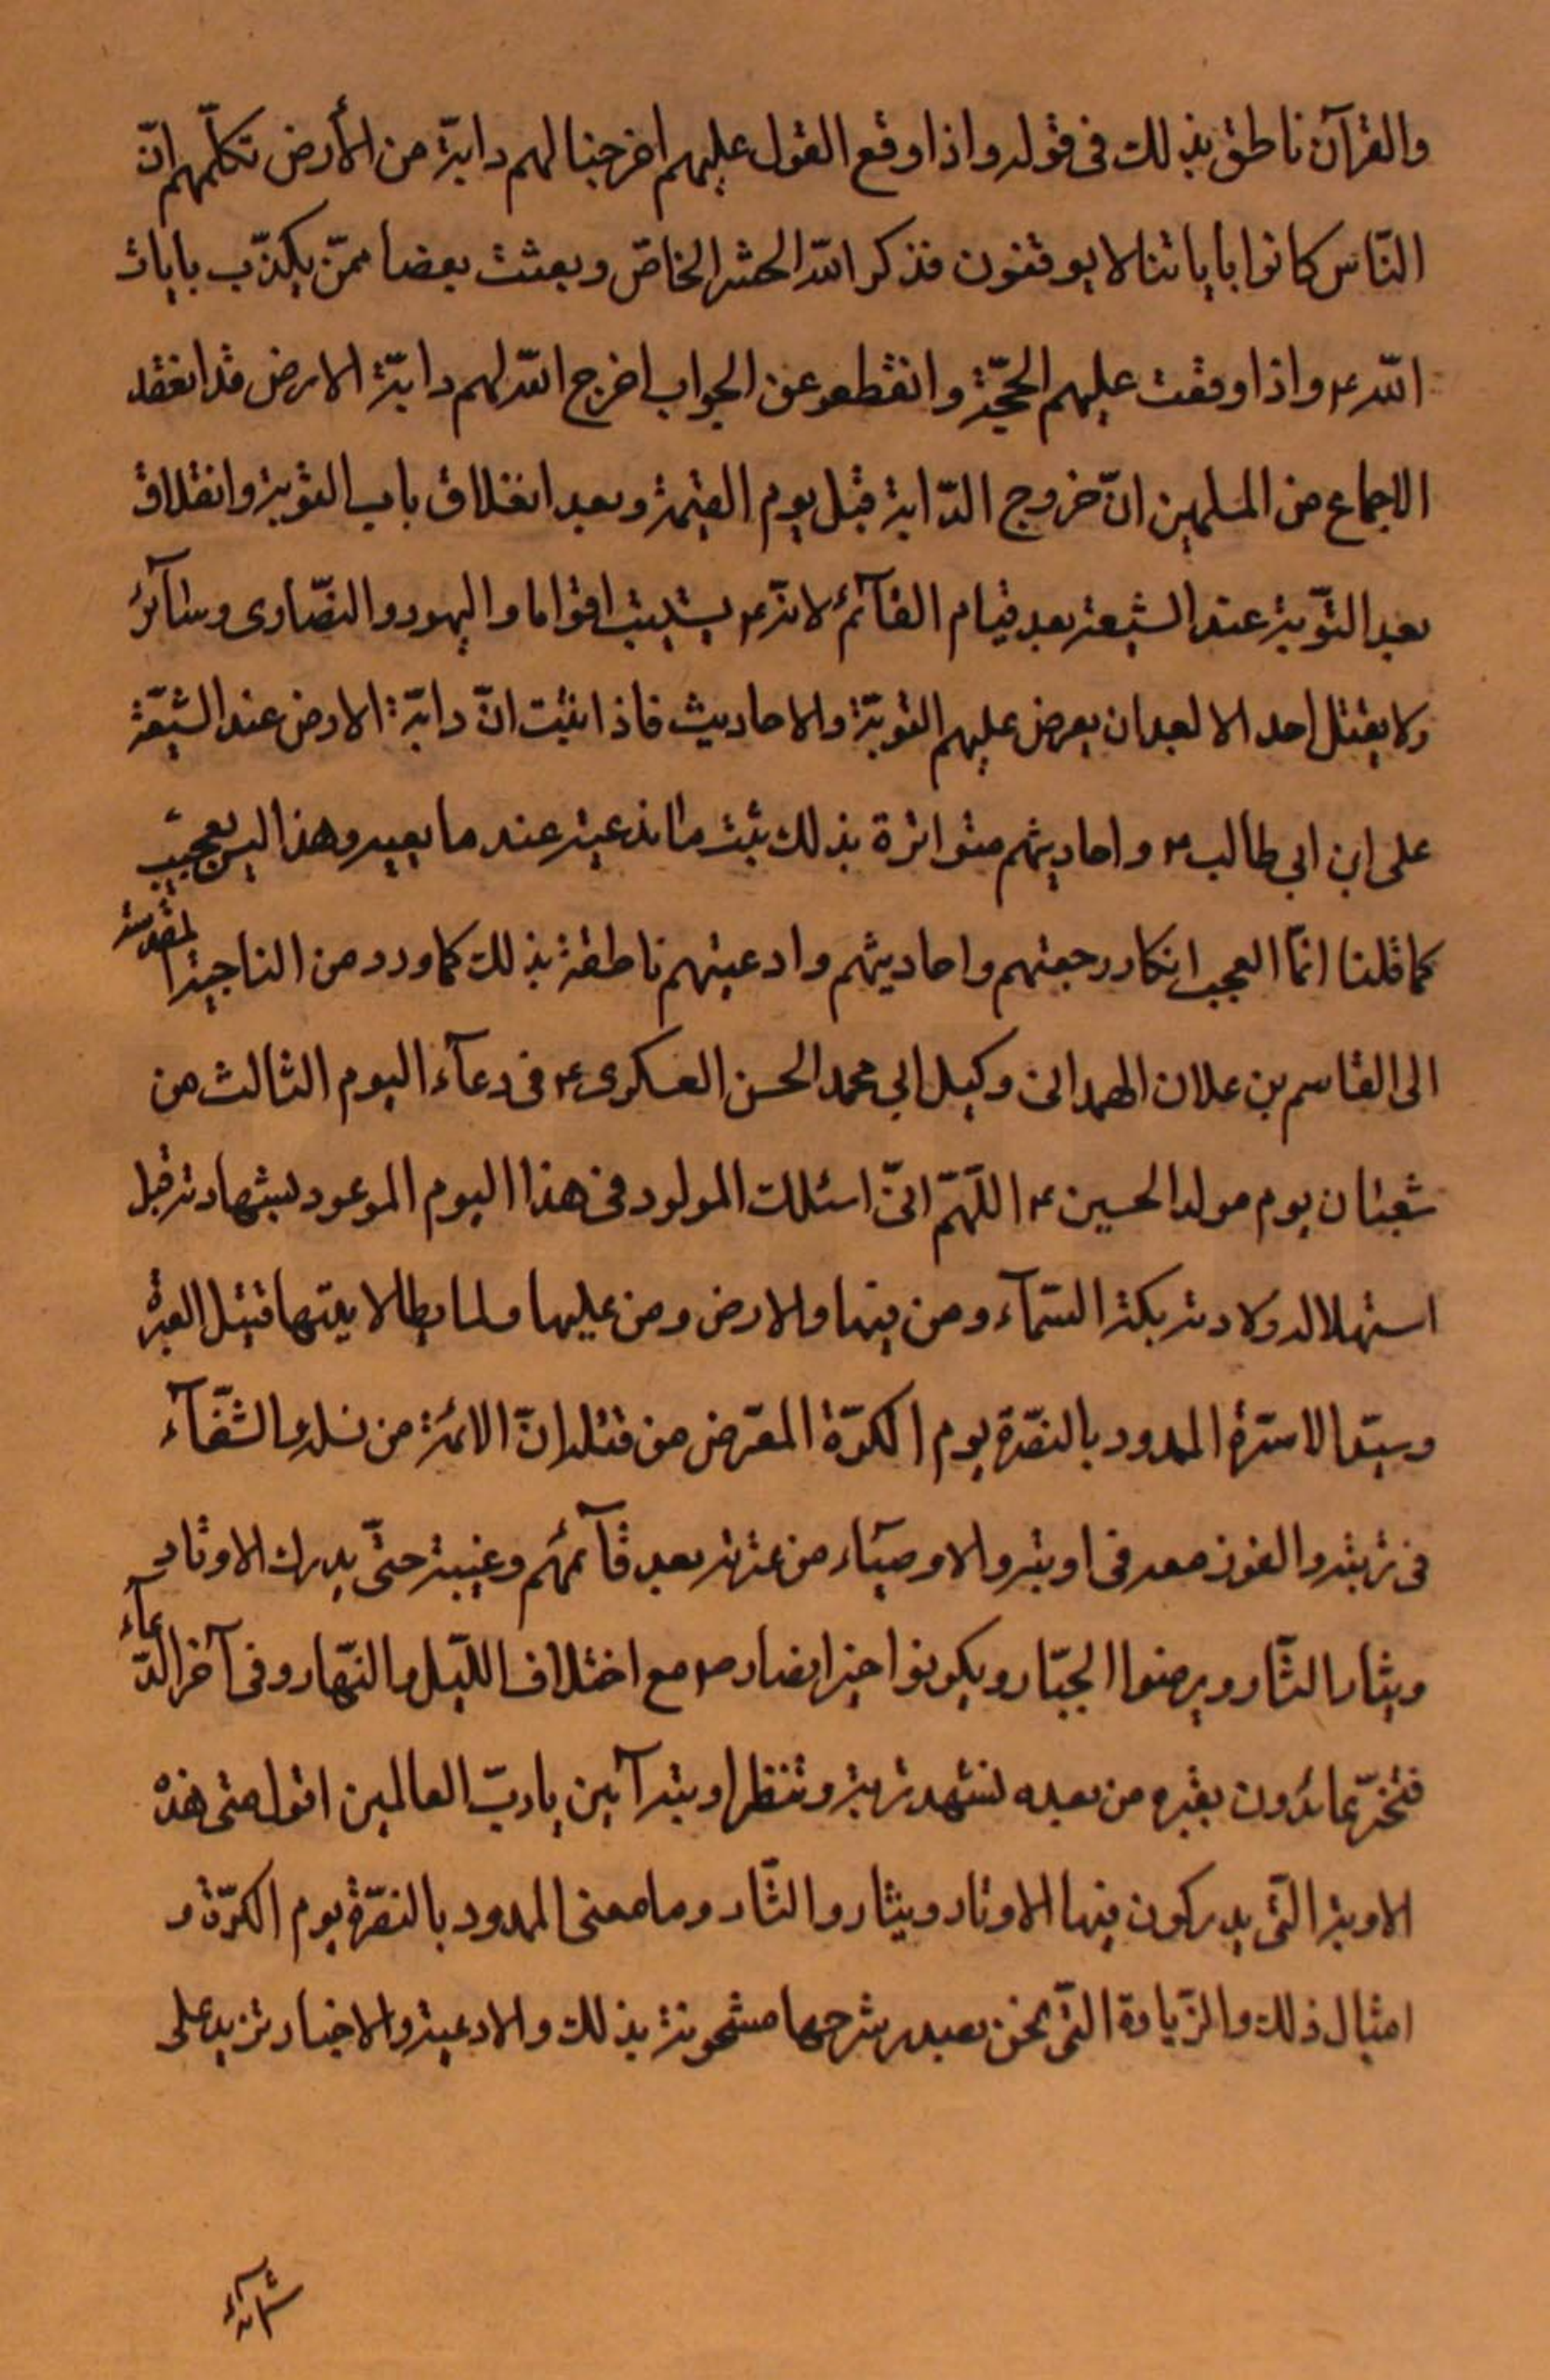 والقرآن ناطق بذلك فى قوله واذا وقع القول عليهم اخرجنا لهم دابّة من الأرض تكلّمهم انّ
النّاس كانوا باياتنا لا يوقنون فذكر الله الحشر الخاصّ وبعثت بعضا ممّن يكذّب بايات
الله ۴ واذا وقعت عليهم الحجّة وانقطعو عن الجواب اخرج الله لهم دابّة الارض قد انعقد
الاجماع من المسلمين انّ خروج الدّابة قبل يوم القيمة وبعد انغلاق باب التوبة وانغلاق
بعد التّوبة عند الشيعة بعد قيام القآئم لانه ۴ يستتيب اقواما واليهود والنصّارى وسآئر
ولا يقتل احد الا بعد ان يعرض عليهم التوبّة والاحاديث فاذا اثبت انّ دابّة الارض عند الشيّعة
على ابن ابى طالب ۴ واحاديثهم متواترة بذلك ثبت ما ندعيه عند ما بعيد وهذا ليس بعجيب
كما قلنا انّما العجب انكار رجعتهم واحاديثهم وادعيتهم ناطقة بذلك كما ورد من الناحية المقدسة
الى القاسم بن علان الهمدانى وكيل ابى محمد الحسن العسكرى ۴ فى دعآء اليوم الثالث من
شعبان يوم مولد الحسين ۴ اللّهمّ انىّ اسئلك المولود فى هذا اليوم الموعود بشهادته قبل
استهلاله ولادته بكته السّمآء ومن فيها والارض ومن عليها ولما يطا لا بيتها قتيل العبرة
وسيّد الاسرة الممدود بالنصّرة يوم الكرّة المعّوض من قتله انّ الائمة من نسله والشفّآء
فى تربته والفوز معه فى اوبته والاوصيآء من عترته بعد قآئمهم وغيبته حتىّ يدرك الاوتاد
ويثار الثّار ويرضوا الجبّار ويكونوا خير انصار ص مع اختلاف اللّيل والنّهار وفى آخر الدّعآء
فنحن عائذون بقبره من بعده نشهد تربته وننتظر اوبته آمين يا ربّ العالمين اقول متى هذه
الاوبة التّى يدركون فيها الاوتار ويثاروا الثّار وما معنى الممدود بالنصّرة يوم الكرّة و
امثال ذلك والزّيادة التىّ نحن بصدد شرحها مشحونة بذلك والادعية والاخبار تزيد على